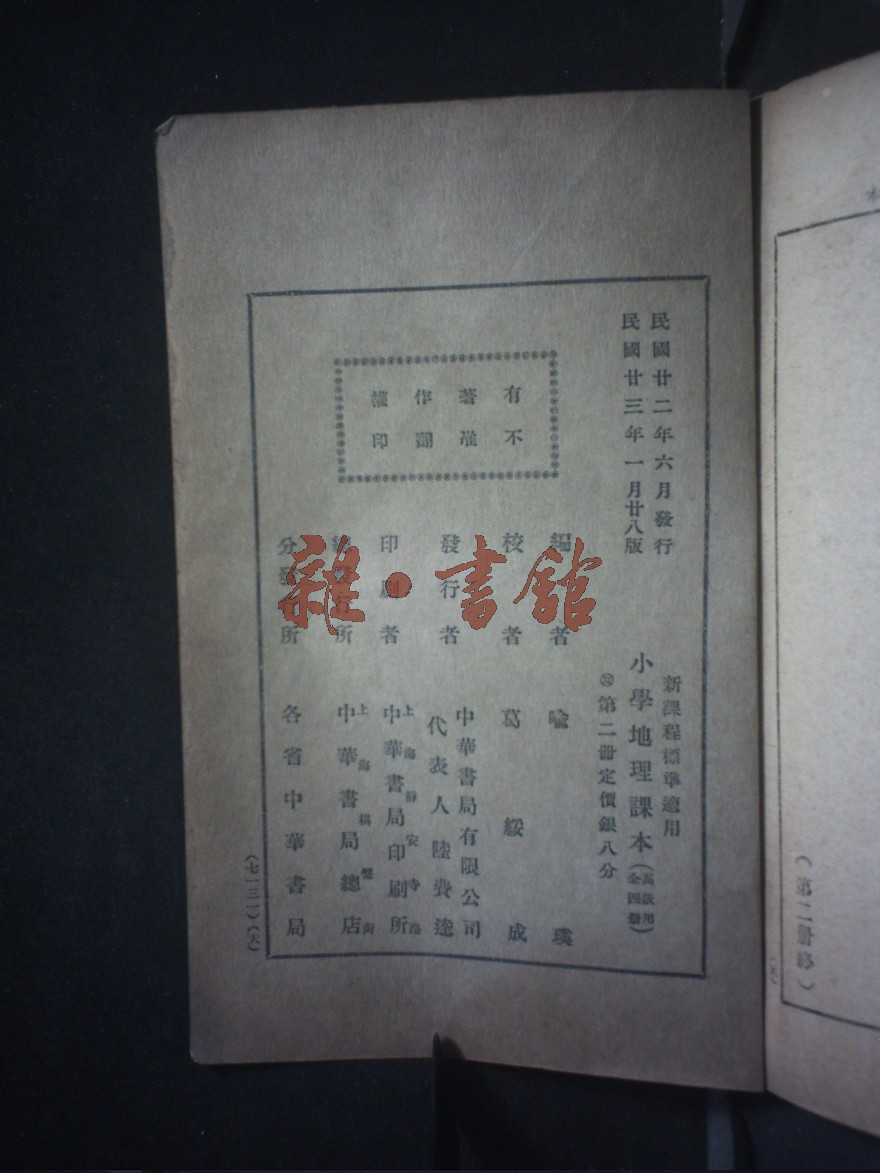 民國廿二年六月發行
民國廿三年一月廿八版
新課程標準適用
小學地理課本(高級用 全四冊)
第二冊定價銀八分
有著作權
不准翻印
編者 喻璞
校者 葛綏成
發行者 中華書局有限公司
代表人陸費逵
印刷者 上海靜安寺路
中華書局印刷所
總發行所 上海棋盤街
中華書局總店
分發行所 各省中華書局
(七一三一)(大)
雜·書館
(第二冊終)